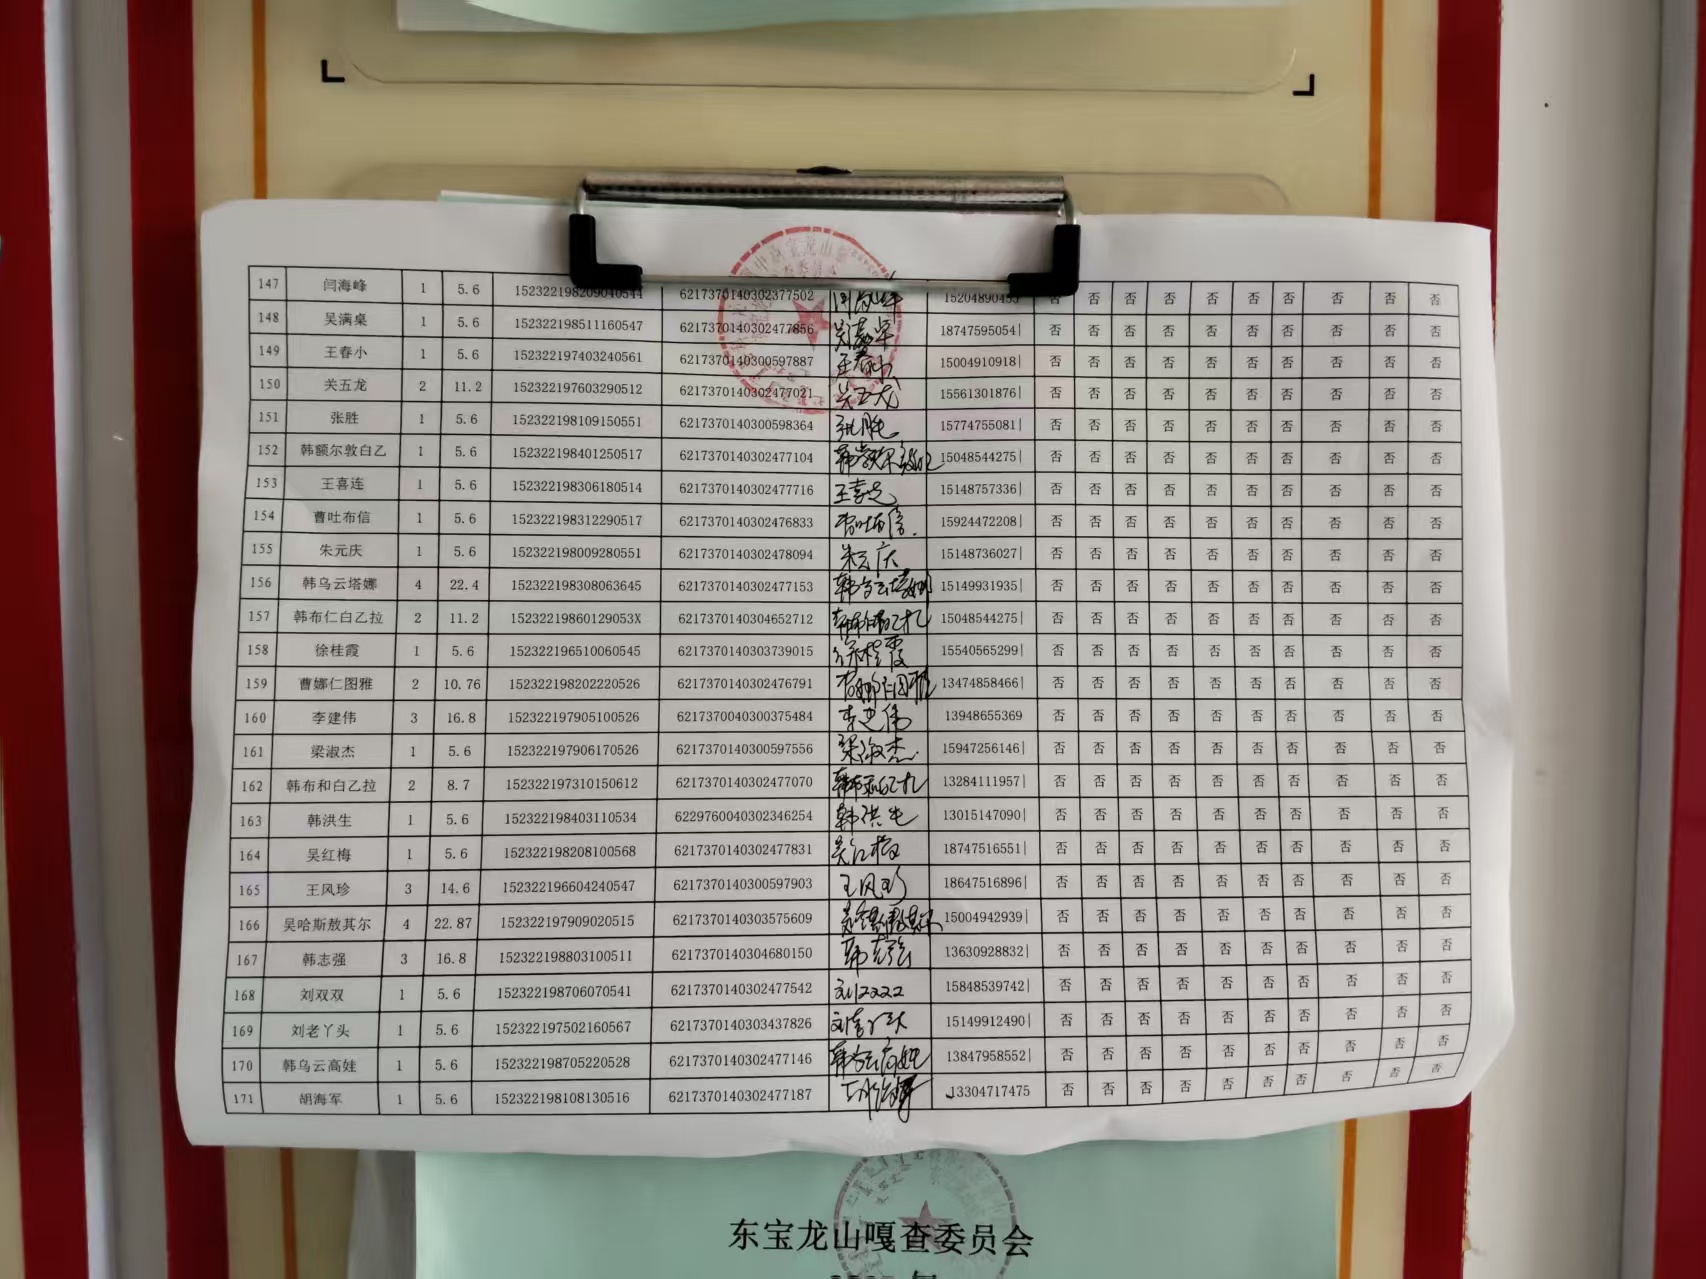 147 闫海峰 1 5.6 152322198209040544 6217370140302377502 15204890455 否 否 否 否 否 否 否 否 否 否
148 吴满桌 1 5.6 152322198511160547 6217370140302477856 18747595054 否 否 否 否 否 否 否 否 否 否
149 王春小 1 5.6 152322197403240561 6217370140300597887 王春小 15004910918 否 否 否 否 否 否 否 否 否 否
150 关五龙 2 11.2 152322197603290512 6217370140302477021 关五龙 15561301876 否 否 否 否 否 否 否 否 否 否
151 张胜 1 5.6 152322198109150551 6217370140300598364 张胜 15774755081 否 否 否 否 否 否 否 否 否 否
152 韩额尔敦白乙 1 5.6 152322198401250517 6217370140302477104 15048544275 否 否 否 否 否 否 否 否 否 否
153 王喜连 1 5.6 152322198306180514 6217370140302477716 王喜连 15148757336 否 否 否 否 否 否 否 否 否 否
154 曹吐布信 1 5.6 152322198312290517 6217370140302476833 曹吐布信 15924472208 否 否 否 否 否 否 否 否 否 否
155 朱元庆 1 5.6 152322198009280551 6217370140302478094 朱元庆 15148736027 否 否 否 否 否 否 否 否 否 否
156 韩乌云塔娜 4 22.4 152322198308063645 6217370140302477153 韩乌云塔娜 15149931935 否 否 否 否 否 否 否 否 否 否
157 韩布仁白乙拉 2 11.2 15232219860129053X 6217370140304652712 15048544275 否 否 否 否 否 否 否 否 否 否
158 徐桂霞 1 5.6 152322196510060545 6217370140303739015 徐桂霞 15540565299 否 否 否 否 否 否 否 否 否 否
159 曹娜仁图雅 2 10.76 152322198202220526 6217370140302476791 曹娜仁图雅 13474858466 否 否 否 否 否 否 否 否 否 否
160 李建伟 3 16.8 152322197905100526 6217370040300375484 李建伟 13948655369 否 否 否 否 否 否 否 否 否 否
161 梁淑杰 1 5.6 152322197906170526 6217370140300597556 梁淑杰 15947256146 否 否 否 否 否 否 否 否 否 否
162 韩布和白乙拉 2 8.7 152322197310150612 6217370140302477070 13284111957 否 否 否 否 否 否 否 否 否 否
163 韩洪生 1 5.6 152322198403110534 6229760040302346254 韩洪生 13015147090 否 否 否 否 否 否 否 否 否 否
164 吴红梅 1 5.6 152322198208100568 6217370140302477831 吴红梅 18747516551 否 否 否 否 否 否 否 否 否 否
165 王风珍 3 14.6 152322196604240547 6217370140300597903 王风珍 18647516896 否 否 否 否 否 否 否 否 否 否
166 吴哈斯敖其尔 4 22.87 152322197909020515 6217370140303575609 15004942939 否 否 否 否 否 否 否 否 否 否
167 韩志强 3 16.8 152322198803100511 6217370140304680150 韩志强 13630928832 否 否 否 否 否 否 否 否 否 否
168 刘双双 1 5.6 152322198706070541 6217370140302477542 刘双双 15848539742 否 否 否 否 否 否 否 否 否 否
169 刘老丫头 1 5.6 152322197502160567 6217370140303437826 刘老丫头 15149912490 否 否 否 否 否 否 否 否 否 否
170 韩乌云高娃 1 5.6 152322198705220528 6217370140302477146 韩乌云高娃 13847958552 否 否 否 否 否 否 否 否 否 否
171 胡海军 1 5.6 152322198108130516 6217370140302477187 13304717475 否 否 否 否 否 否 否 否 否 否
东宝龙山嘎查委员会